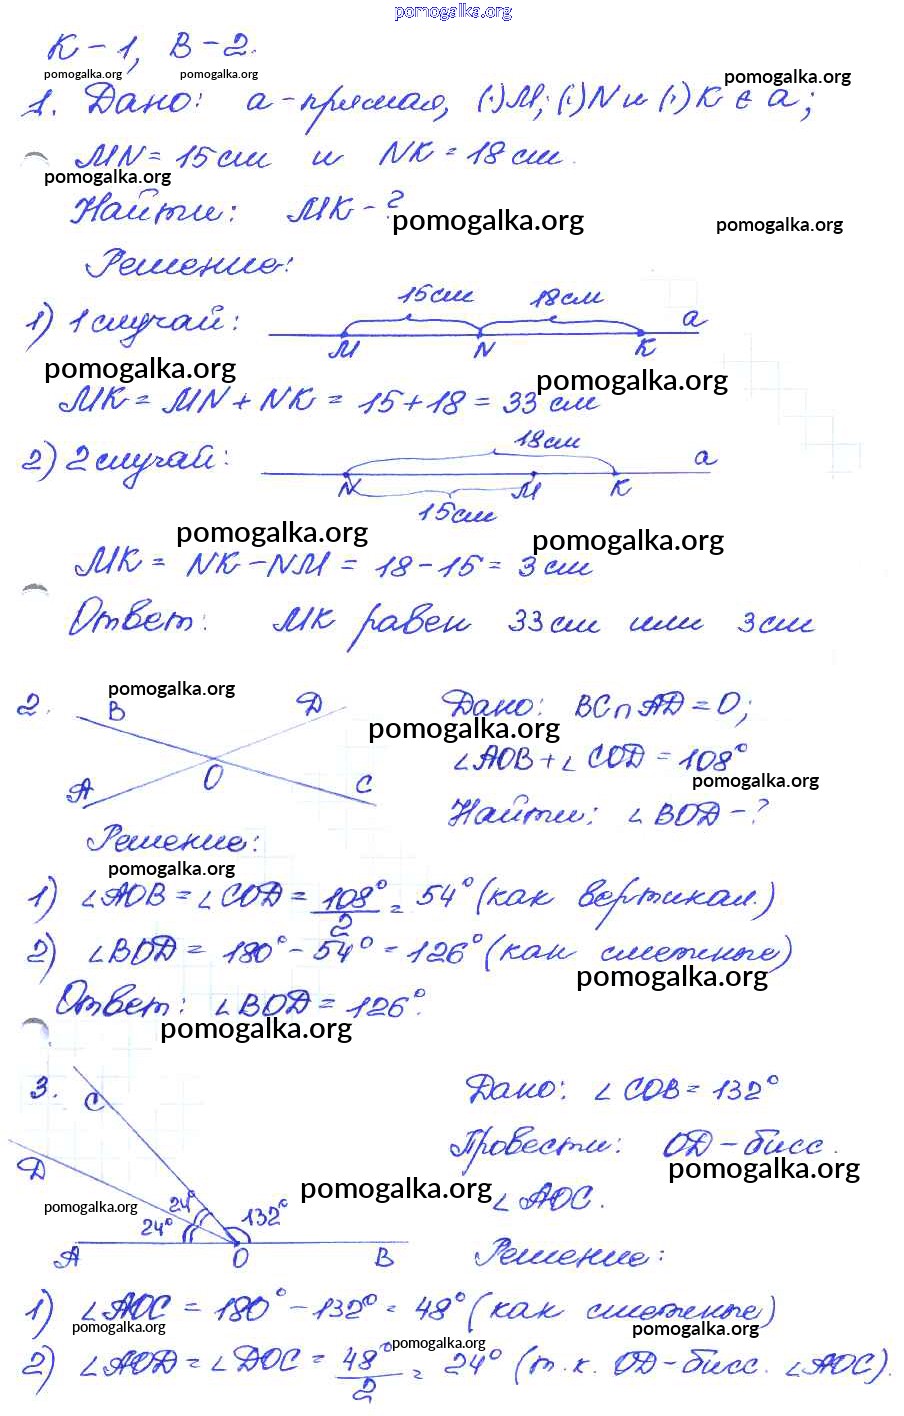 pomogalka.org
К-1, В-2.
pomogalka.org pomogalka.org pomogalka.org
1. Дано: a-прямая, (·)M; (·)N и (·)K ∈ a;
MN = 15 см и NK = 18 см.
pomogalka.org
Найти: MK - ?
pomogalka.org pomogalka.org
Решение:
15 см 18 см
1) 1 случай: a
M N K
pomogalka.org pomogalka.org
MK = MN + NK = 15 + 18 = 33 см
18 см
2) 2 случай: a
N M K
15 см
pomogalka.org pomogalka.org
MK = NK - NM = 18 - 15 = 3 см
Ответ: MK равен 33 см или 3 см
pomogalka.org
2. B D Дано: BC ∩ AD = O;
pomogalka.org
∠AOB + ∠COD = 108°
A O C pomogalka.org
Найти: ∠BOD - ?
Решение:
pomogalka.org
1) ∠AOB = ∠COD = 108°/2 = 54° (как вертикал.)
2) ∠BOD = 180° - 54° = 126° (как смежные)
pomogalka.org
Ответ: ∠BOD = 126°.
pomogalka.org
3. C Дано: ∠COB = 132°
Провести: OD - бисс.
D pomogalka.org
pomogalka.org pomogalka.org ∠AOC.
24° 24° 132°
A O B Решение:
1) ∠AOC = 180° - 132° = 48° (как смежные)
pomogalka.org pomogalka.org
pomogalka.org
2) ∠AOD = ∠DOC = 48°/2 = 24° (т.к. OD - бисс. ∠AOC).